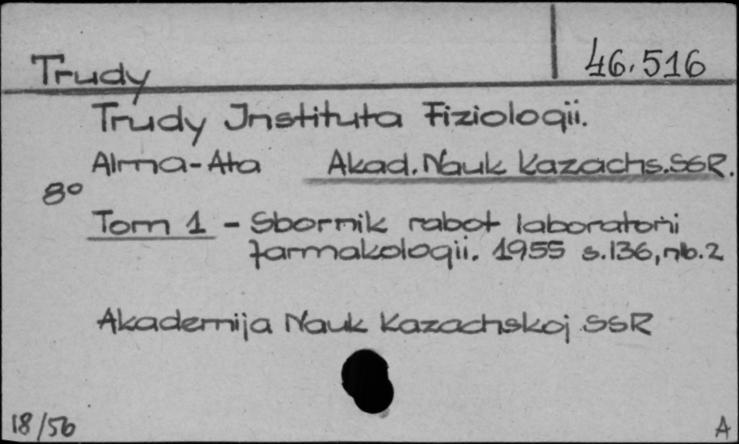 Trudy
46.516
Trudy Instituta Fiziologii.
Alma-Ata Akad. Nauk Kazachs. SSR.
8°
Tom 1 - Sbornik rabot laboratorii
farmakologii. 1955 s.136, nlb.2
Akademija Nauk Kazachskoj SSR
18/56
A